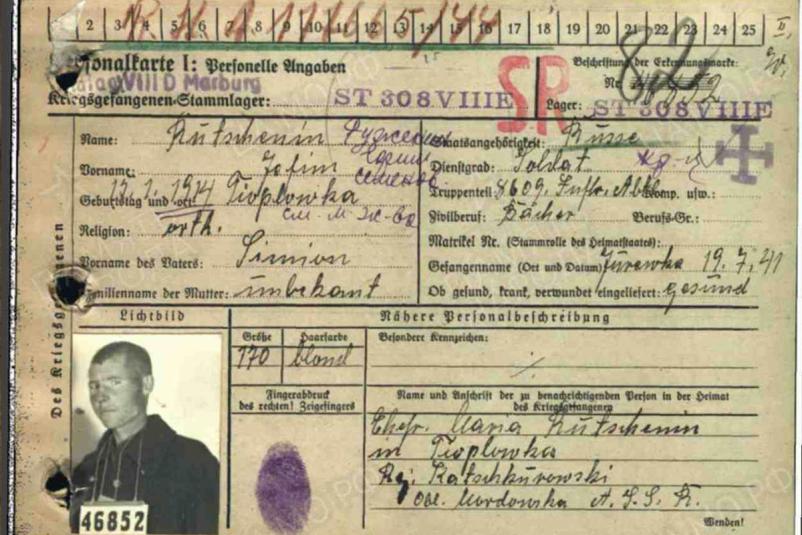 1 2 3 4 5 6 7 8 9 10 11 12 13 14 15 16 17 18 19 20 21 22 23 24 25
Personalkarte I: Personelle Angaben
Beschriftung der Erkennungsmarke:
Stalag VIII D Marburg
SR
82
Nr.
Kriegsgefangenen-Stammlager: ST 308 VIIIE
Lager: ST 308 VIIIE
Name: Kutschenin
Staatsangehörigkeit: Russe
Vorname: Jofim
Dienstgrad: Soldat
Geburtstag und -ort: 1914 Tioplowka
Truppenteil: 8609. Inftr. Abt. Komp. usw.:
Zivilberuf: Bächer Berufs-Gr.:
Religion: orth.
Matrikel Nr. (Stammrolle des Heimatstaates):
Vorname des Vaters: Simion
Gefangennahme (Ort und Datum): Jurewka 19.7.41
Familienname der Mutter: unbekant
Ob gesund, krank, verwundet eingeliefert: gesund
Des Kriegsgefangenen
Lichtbild
Nähere Personalbeschreibung
Größe
Haarfarbe
Besondere Kennzeichen:
170
blond
Fingerabdruck
des rechten! Zeigefingers
Name und Anschrift der zu benachrichtigenden Person in der Heimat
des Kriegsgefangenen
Ehefr. Maria Kutschenin
in Tioplowka
Katschkurowski
Mordowska A. S. S. R.
46852
Wenden!